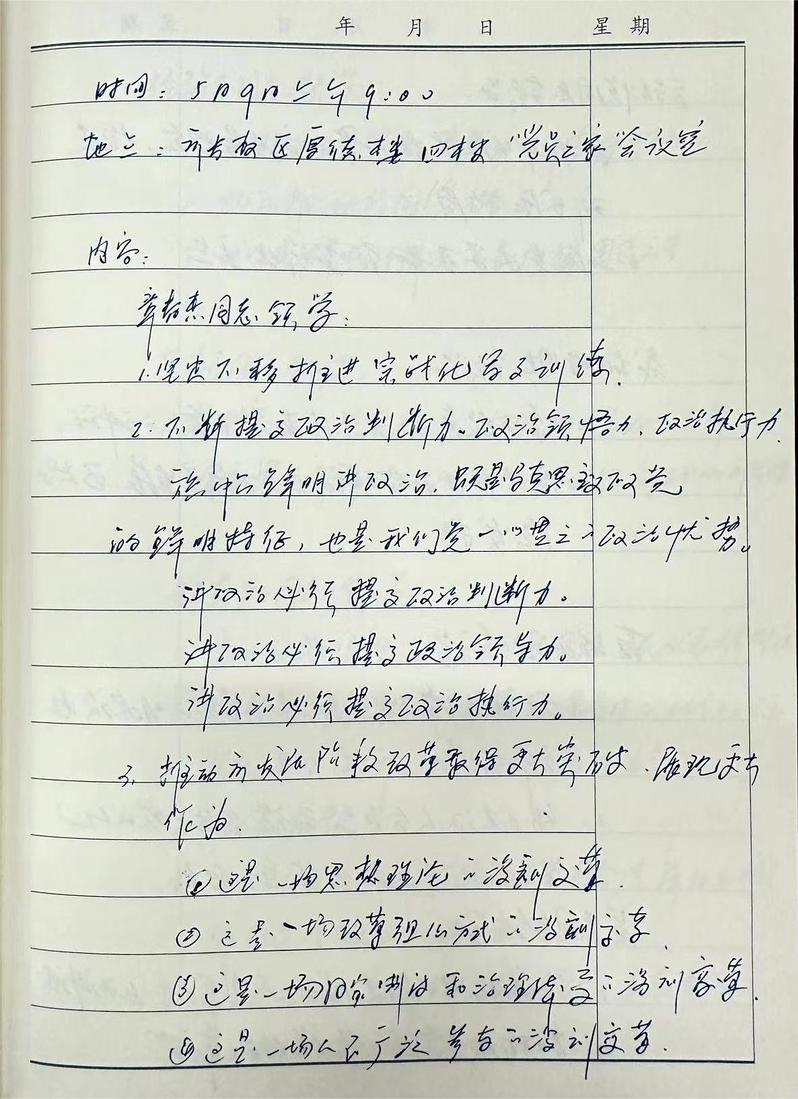 年 月 日 星期
时间：5月9日上午9:00
地点：新校区厚德楼四楼“党员之家”会议室
内容：
同志领学：
1.坚定不移推进实战化军事训练.
2.不断提高政治判断力、政治领悟力、政治执行力
旗帜鲜明讲政治，既是马克思主义政党
的鲜明特征，也是我们党一以贯之的政治优势。
讲政治必须提高政治判断力。
讲政治必须提高政治领导力。
讲政治必须提高政治执行力。
3.推动新发展阶段改革取得更大突破、展现更大
作为.
①这是一场思想理论的深刻变革.
②这是一场改革组织方式的深刻变革.
③这是一场国家制度和治理体系的深刻变革.
④这是一场人民广泛参与的深刻变革.